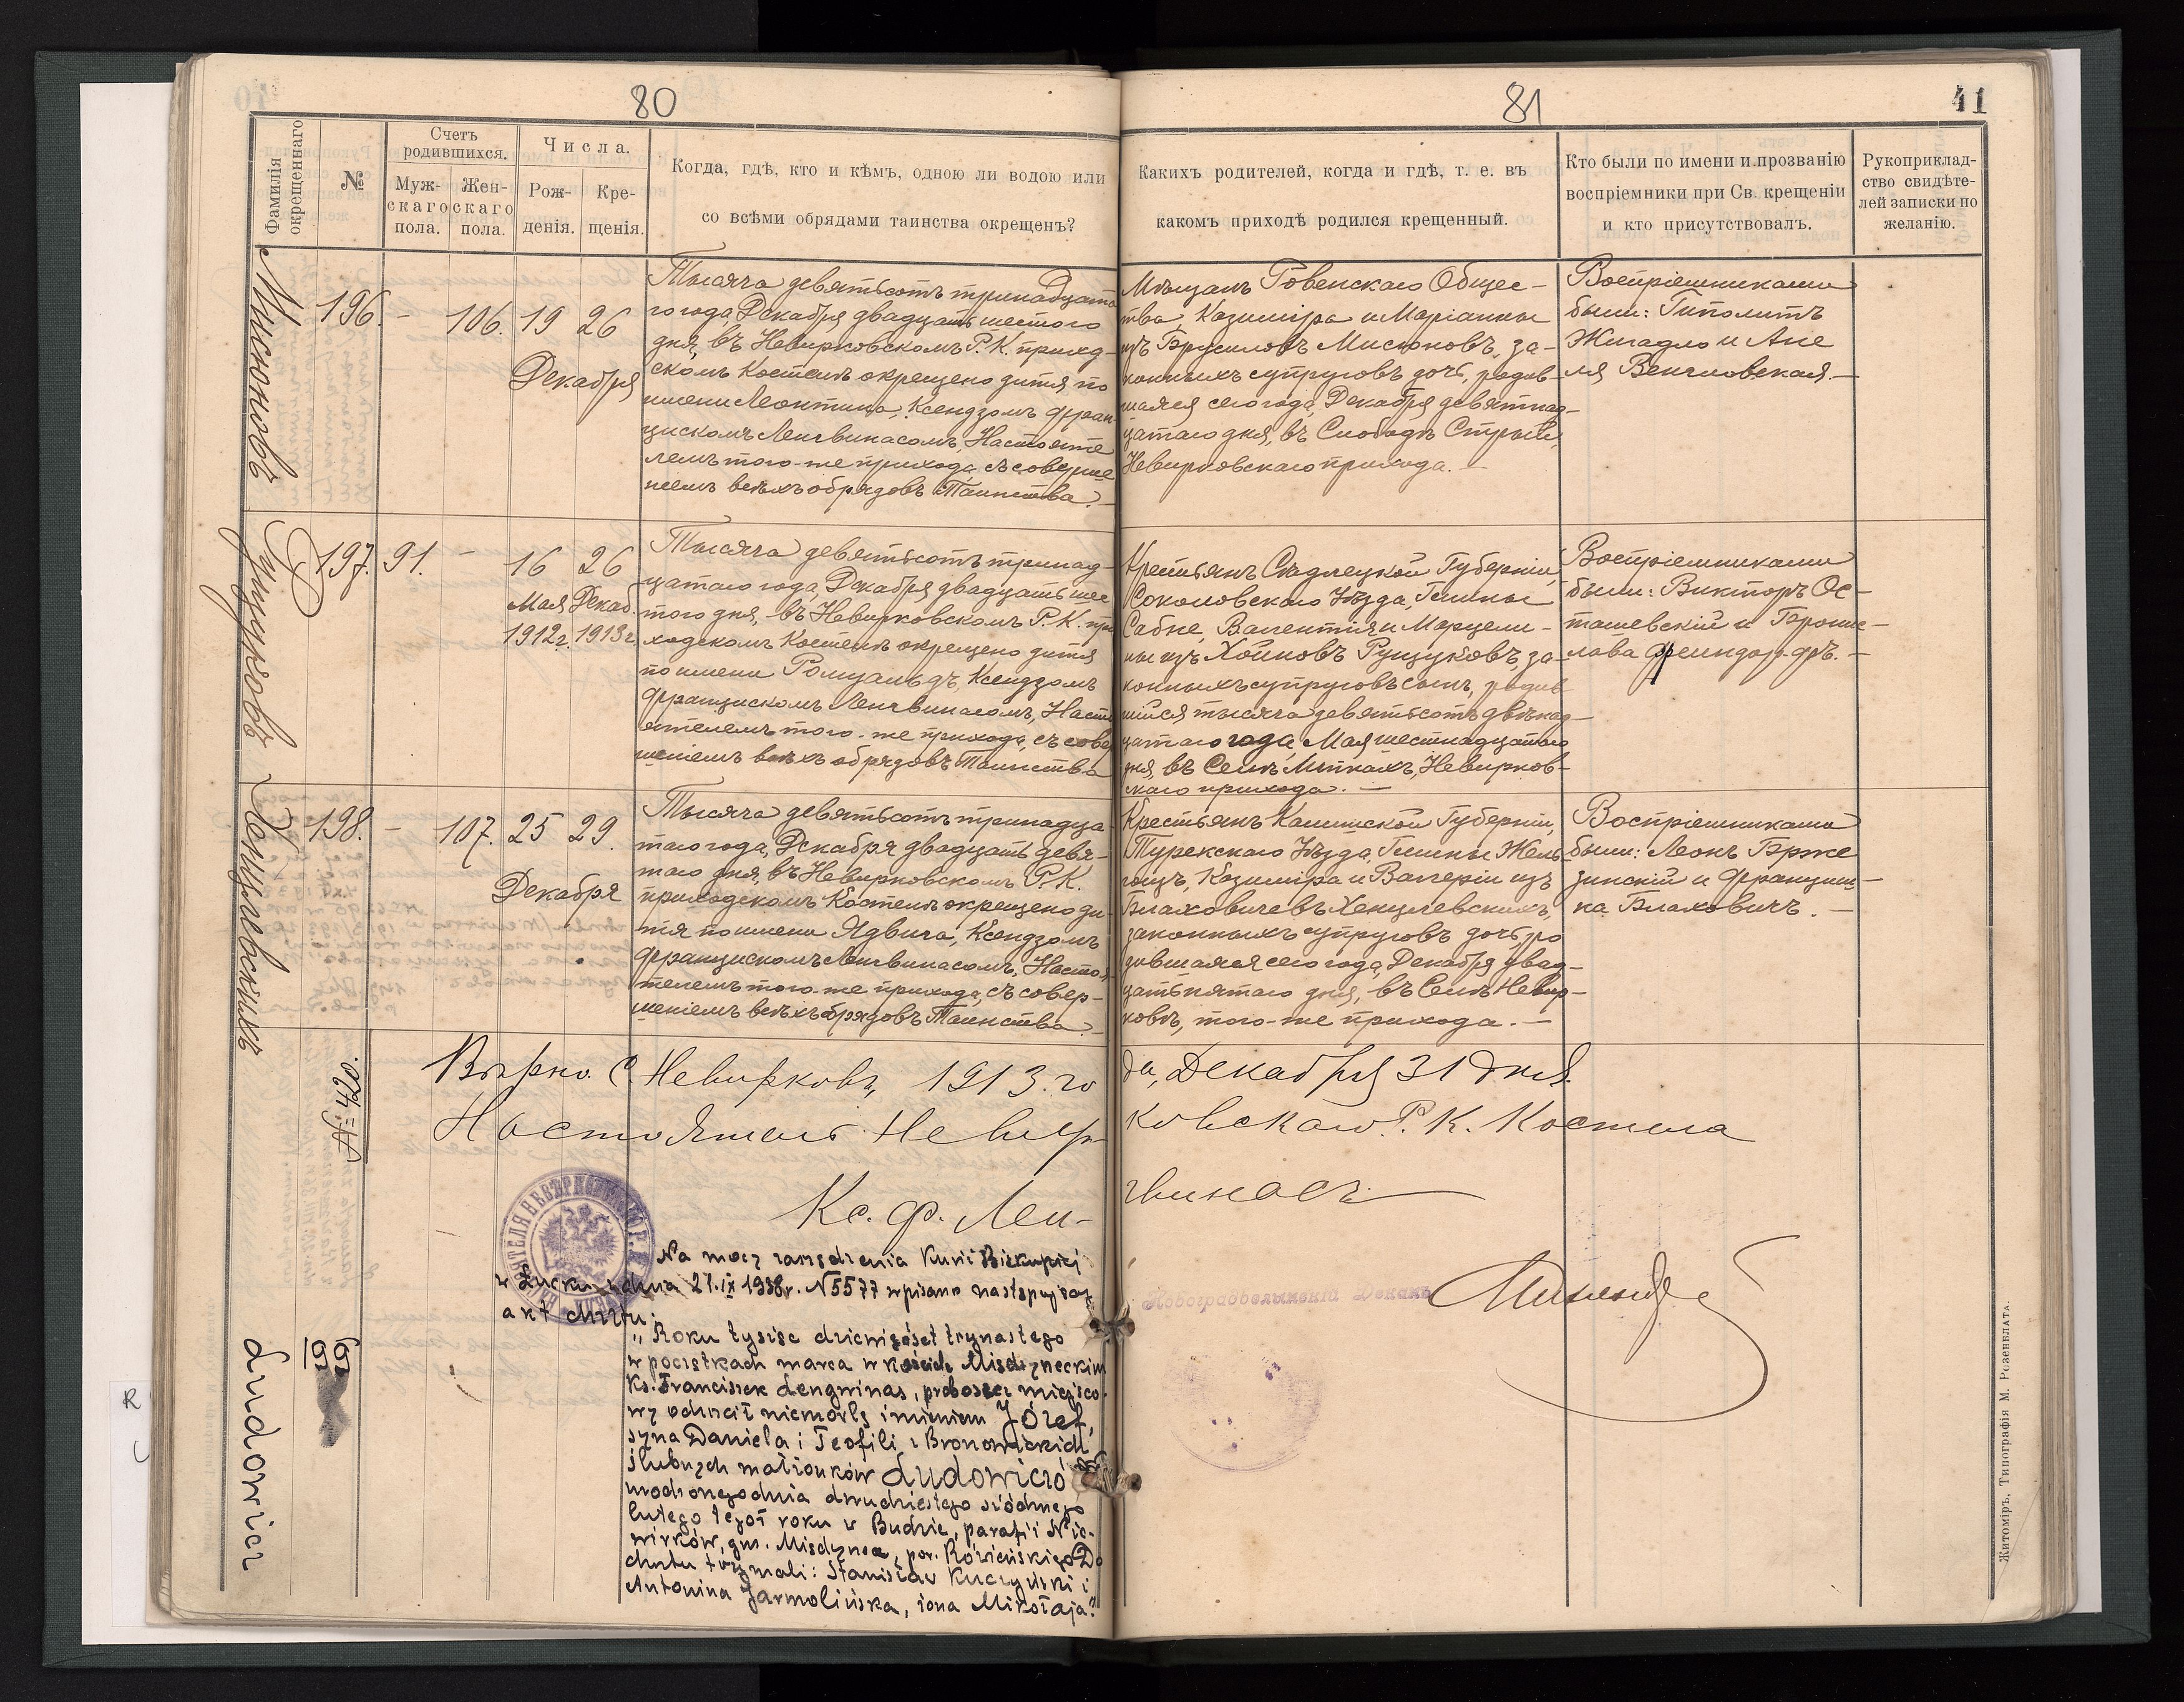 80
81
41
Фамилія окрещеннаго
№
Счетъ родившихся.
Муж-
скаго
пола.
Жен-
скаго
пола.
Числа.
Рож-
денія.
Кре-
щенія.
Когда, гдѣ, кто и кѣмъ, одною ли водою или
со всѣми обрядами таинства окрещенъ?
Какихъ родителей, когда и гдѣ, т. е. въ
какомъ приходѣ родился крещенный.
Кто были по имени и прозванію
воспріемники при Св. крещеніи
и кто присутствовалъ.
Рукоприклад-
ство свидѣте-
лей записки по
желанію.
Мисюковъ
196. - 106. 19 26
Декабря
Тысяча девятьсотъ тринадцата
го года, Декабря двадцать шестого
дня, въ Невирковскомъ Р. К. приход-
скомъ Костелѣ окрещено дитя по
имени Леонтина, Ксендзомъ Фран-
цискомъ Ленгвинасомъ, Настояте
лемъ того-же прихода, съ соверше
ніемъ всѣхъ обрядовъ Таинства. -
Мѣщанъ Ровенскаго Общес-
тва, Казиміра и Маріанны
изъ Брусиловъ Мисюковъ, за-
конныхъ супруговъ дочь, родив-
шаяся сего года, Декабря девятнад-
цатаго дня, въ Слободѣ Стрый,
Невирковскаго прихода. -
Воспріемниками
были: Гиполитъ
Жигадло и Ане
ля Венгловская. -
Рущуковъ
197. 91. - 16 26
Мая Декаб.
1912г. 1913г.
Тысяча девятьсотъ тринад-
цатаго года, Декабря двадцать шес
того дня, въ Невирковскомъ Р. К. при
ходскомъ Костелѣ окрещено дитя
по имени Ромуальдъ, Ксендзомъ
Францискомъ Ленгвинасомъ, Насто
ятелемъ того-же прихода, съ совер
шеніемъ всѣхъ обрядовъ Таинства
Крестьянъ Сѣдлецкой Губерніи,
Соколовскаго Уѣзда, Гмины
Сабне, Валентія и Марцели-
ны изъ Хойновъ Рущуковъ, за-
конныхъ супруговъ сынъ, родив
шійся тысяча девятьсотъ двѣнад-
цатаго года, Мая шестнадцатаго
дня, въ Селѣ Миткахъ, Невирков-
скаго прихода. -
Воспріемниками
были: Викторъ Ос-
ташевскій и Брони-
слава -
Хенцлевскихъ
198. - 107. 25 29.
Декабря
Тысяча девятьсотъ тринадца-
таго года, Декабря двадцать девя-
таго дня, въ Невирковскомъ Р. К.
приходскомъ Костелѣ окрещено ди-
тя по имени Ядвига, Ксендзомъ
Францискомъ Ленгвинасомъ, Настоя-
телемъ того-же прихода, съ совер-
шеніемъ всѣхъ обрядовъ Таинства. -
Крестьянъ Калишской Губерніи,
Турекскаго Уѣзда, Гмины
Казиміра и Валеріи изъ
Блаховичевъ Хенцлевскихъ,
законныхъ супруговъ дочь, ро
дившаяся сего года, Декабря двад-
цать пятаго дня, въ Селѣ Невир-
ковѣ, того-же прихода. -
Воспріемниками
были: Леонъ Брже
зинскій и Францишк-
ка Блаховичъ. -
Вѣрно. С. Невирковъ, 1913. го
да, Декабря 31 дня.
Настоятель Невир-
ковскаго Р. К. Костела
Кс. Ф. Лен-
гвинасъ
№ 420.
Новоградволынскій Деканъ
199
Ludowicz
Na mocy zarządzenia Kurii Biskupiej
w Łucku z dnia 21.IX 1938r. N 5577 wpisano następujący
akt chrztu:
"Roku tysiąc dziewięćset trzynastego
w początkach marca w kościele Międzyrzeckim
Ks. Franciszek Lengwinas, proboszcz miejsco-
wy ochrzcił niemowlę imieniem Józef,
syna Daniela i Teofili z Bronowickich
ślubnych małżonków Ludowiczów
urodzonego dnia dwudziestego siódmego
lutego tegoż roku w Budzie, parafii Nie-
wirków, gm. Międzyrzec, pow. Rówieńskiego. Do
chrztu trzymali: Stanisław Kuczyński i
Antonina Jarmolińska, żona Mikołaja."
Житоміръ, Типографія М. Розенблата.